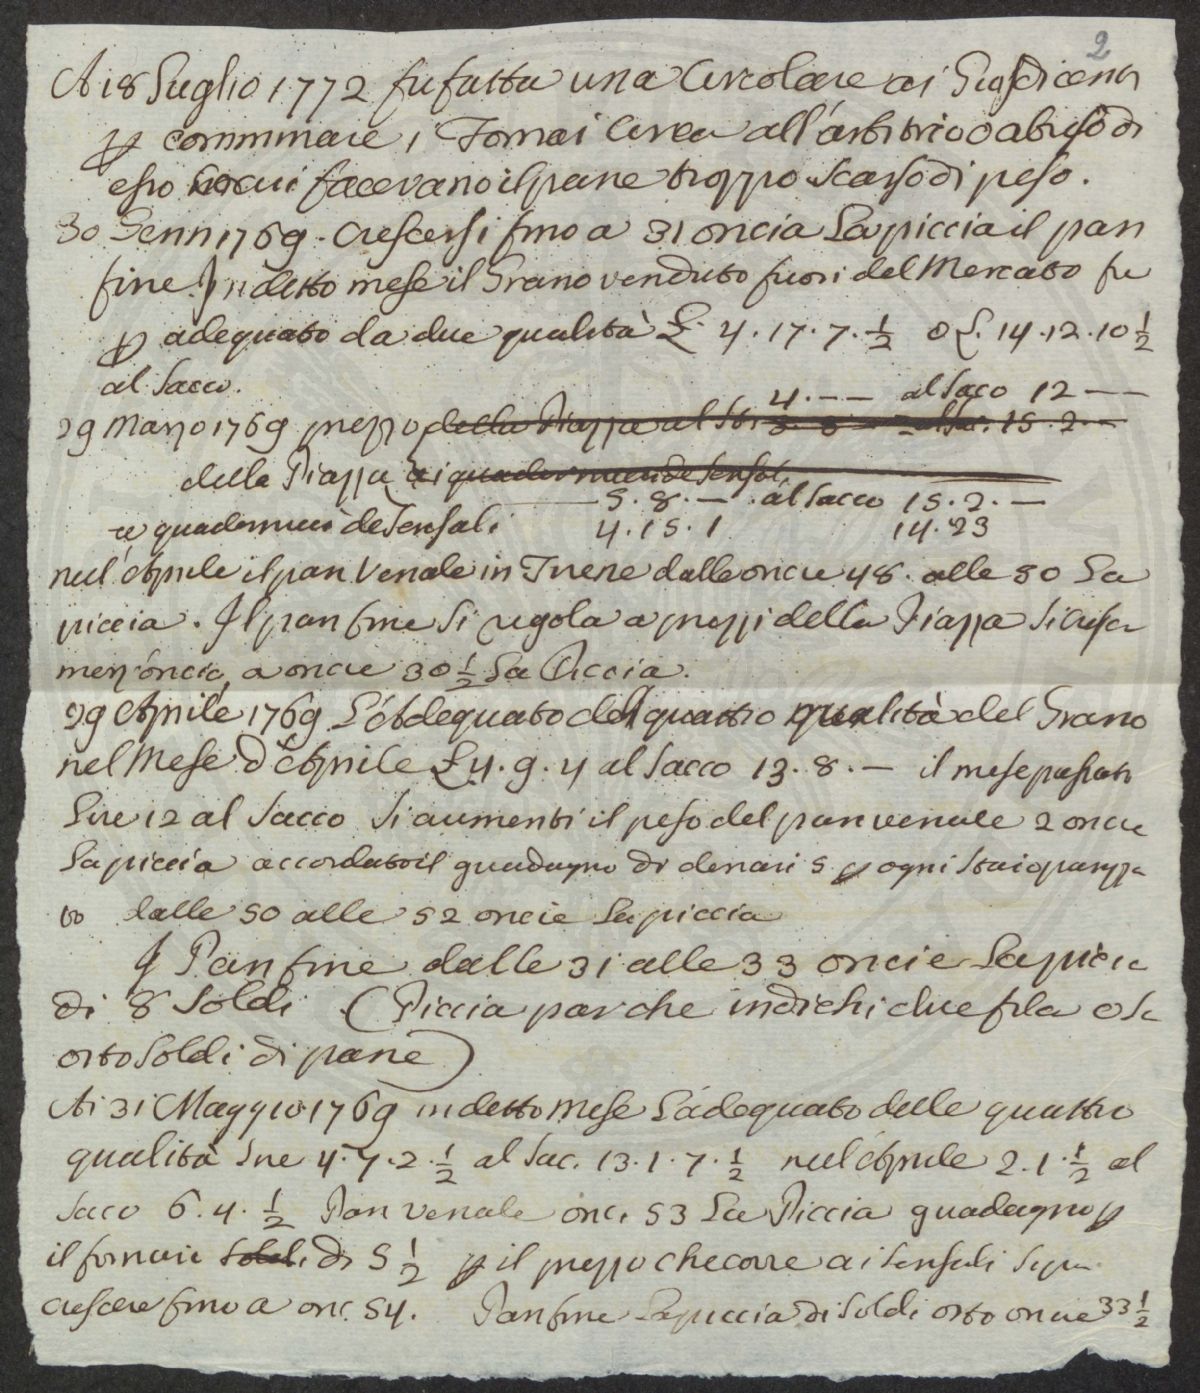 2
A 18 Luglio 1772 fu fatta una Circolare ai Giusdicenti
p comminare i Fornai circa all'arbitrio o abuso di
esso facevano il pane troppo scarso di peso.
30 Genn 1769. Crescersi fino a 31 oncia La piccia il pan
fine. In detto mese il Grano venduto fuori del Mercato fu
p adequato da due qualità £. 4.17.7.½ o £. 14.12.10½
al Sacco.
4.–– al Saco 12 ––
29 Marzo 1769 prezzo della Piazza al St: 5. 8 al Sa: 15.2.–
della Piazza ai quadernucci de Sensal
5.8.– . al Sacco 15.2.–
e quadernucci de Sensali 4.15.1 14.5.3
nell'Aprile il pan Venale in Firene dalle oncie 48. alle 50 La
piccia. Il pan fine si regola a prezzi della Piazza si cresca
mezz'oncia, a oncie 30½ La Piccia.
29 Aprile 1769 L'Adequato del quattro qualità del Grano
nel Mese d'Aprile £4.9.4 al Sacco 13.8.– il mese passato
Lire 12 al Sacco si aumenti il peso del pan venale 2 oncie
La piccia accordato il guadagno di denari 5 p ogni Staio
to dalle 50 alle 52 oncie La piccia
Il Pan fine dalle 31 alle 33 oncie La piccia
di 8 Soldi (Piccia par che indichi due fila o sc
otto Soldi di pane)
A 31 Maggio 1769 in detto Mese L'adequato delle quattro
qualità Lire 4.7.2.½ al Sac. 13.1.7.½ nell'Aprile 2.1.½ al
Saco 6.4.½ Pan venale onc. 53 La Piccia guadagno p
il fornaio Soldi di 5½ p il prezzo che corre ai Sensali si può
crescere fino a onc. 54. Pan fine La piccia di Soldi otto oncie 33½